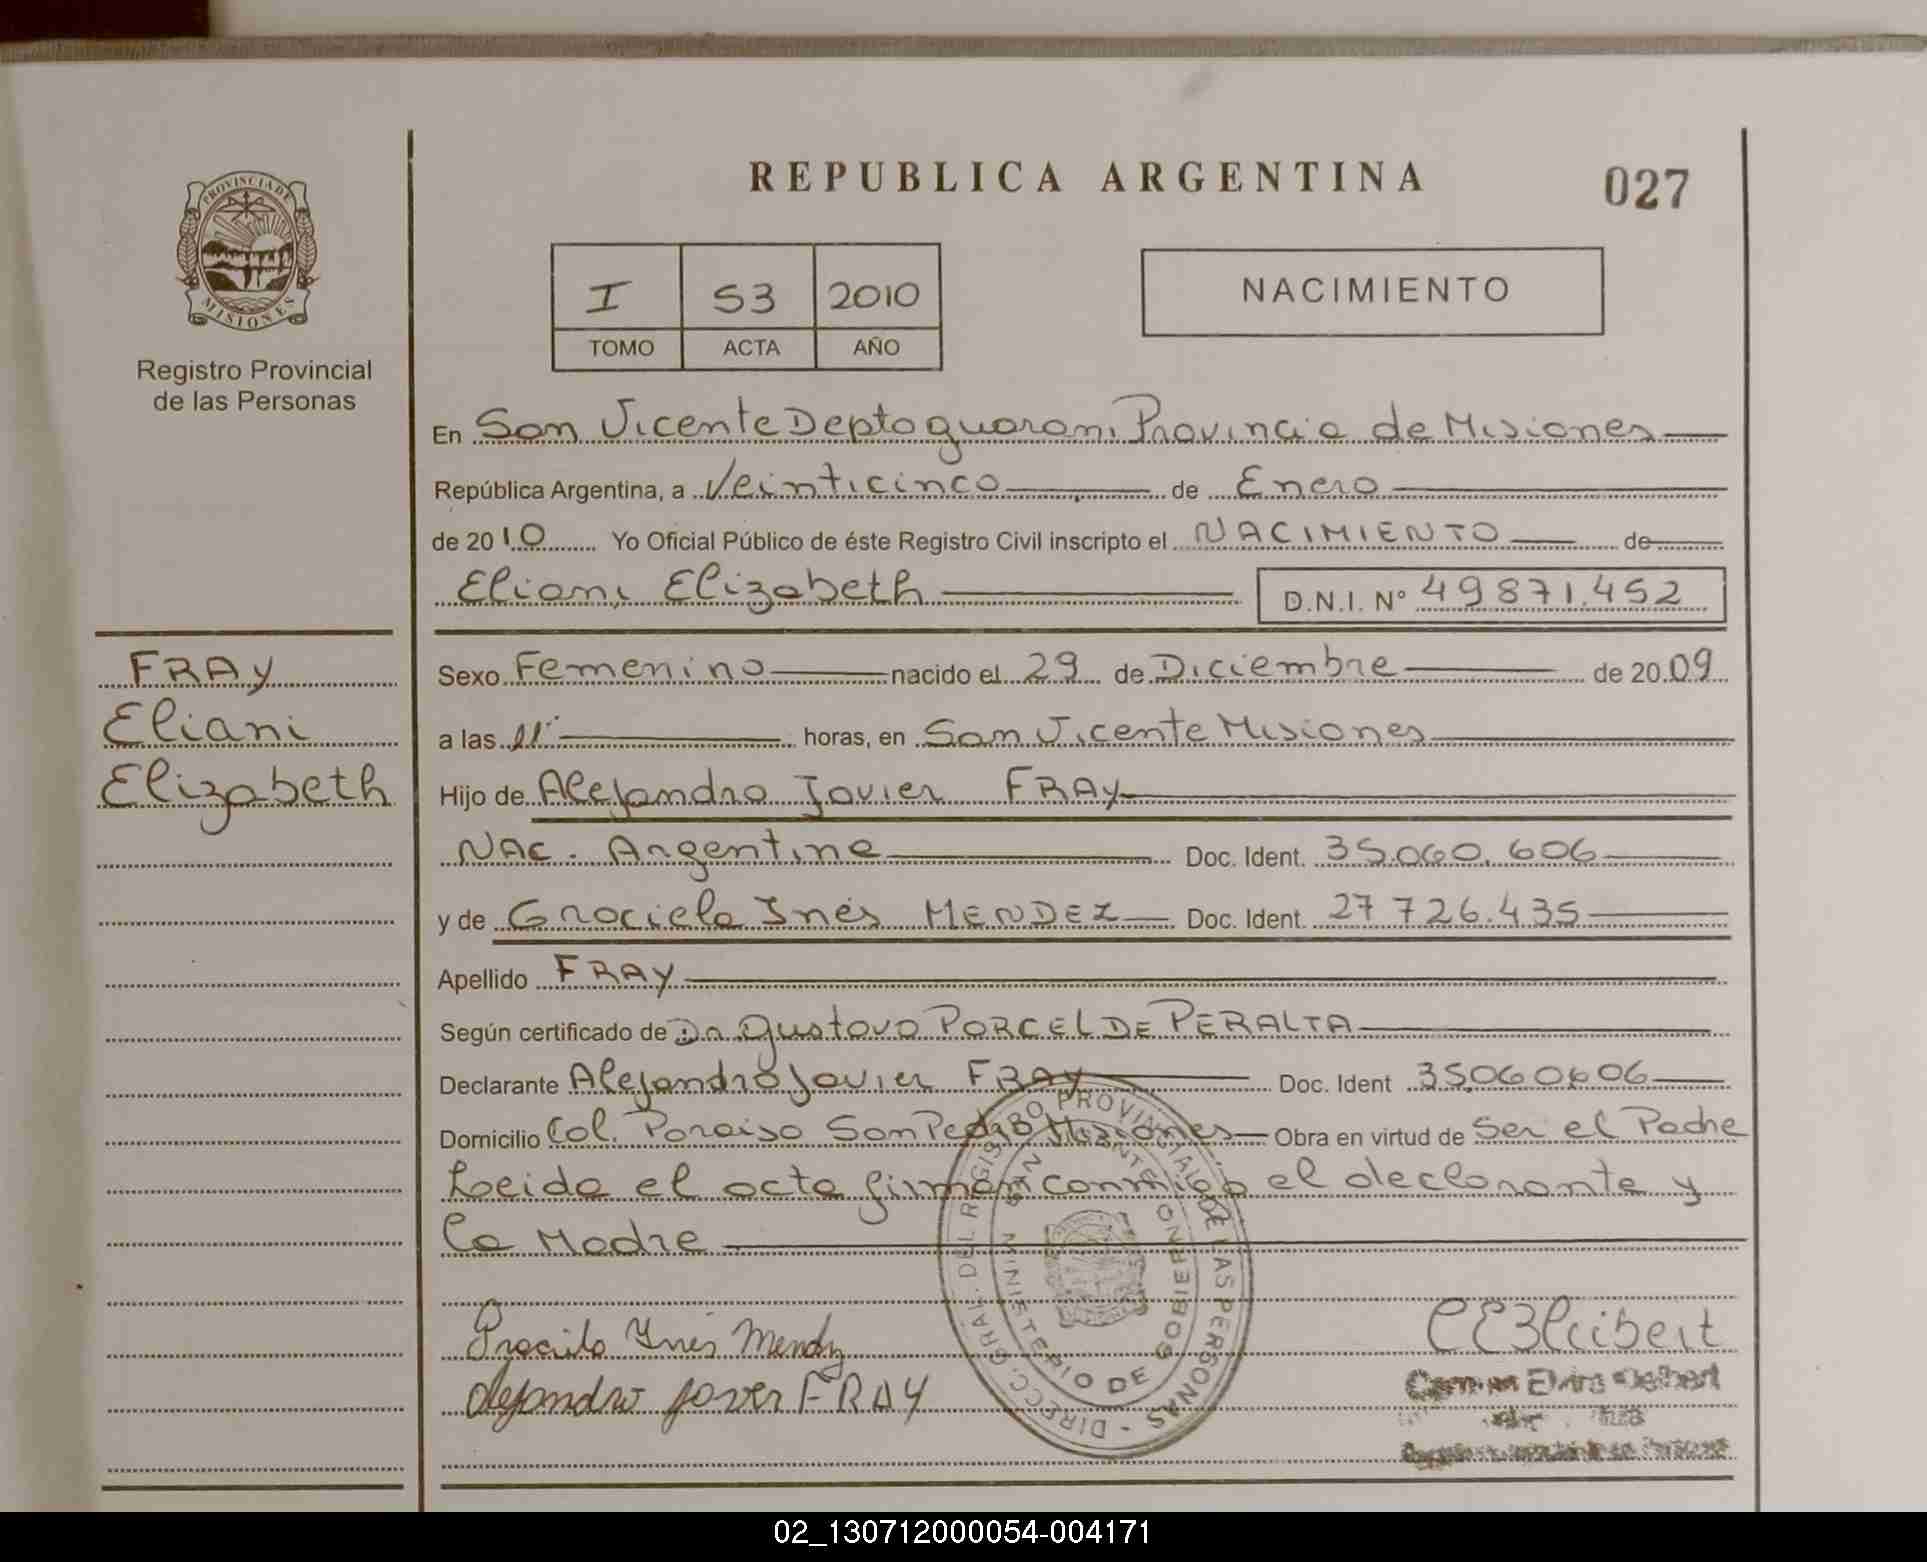 REPUBLICA ARGENTINA
027
PROVINCIA DE
MISIONES
Registro Provincial
de las Personas
I 53 2010
TOMO ACTA AÑO
NACIMIENTO
En San Vicente Depto guarani Provincia de Misiones
República Argentina, a Veinticinco de Enero
de 2010 Yo Oficial Público de éste Registro Civil inscripto el NACIMIENTO de
Eliani Elizabeth D.N.I. N° 49871.452
FRAY
Eliani
Elizabeth
Sexo Femenino nacido el 29 de Diciembre de 2009
a las 11 horas, en San Vicente Misiones
Hijo de Alejandro Javier FRAY
NAC. Argentina Doc. Ident. 35.060.606
y de Graciela Inés MENDEZ Doc. Ident. 27 726.435
Apellido FRAY
Según certificado de Dr. Gustavo PORCEL DE PERALTA
Declarante Alejandro Javier FRAY Doc. Ident 35.060606
Domicilio Col. Paraiso San Pedro Misiones Obra en virtud de Ser el Padre
Leida el acta firman conmigo el declarante y
la Madre
DIRECC. GRAL. DEL REGISTRO PROVINCIAL DE LAS PERSONAS
MINISTERIO DE GOBIERNO
SAN VICENTE
Graciela Ynés Mendez
Alejandro Javier FRAY
Carmen Elvira
02_130712000054-004171